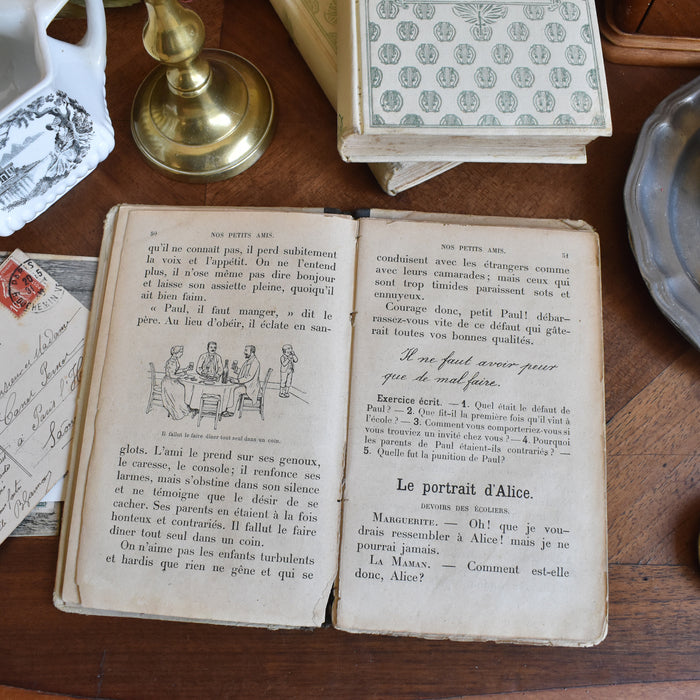 50 NOS PETITS AMIS.
qu'il ne connaît pas, il perd subitement
la voix et l'appétit. On ne l'entend
plus, il n'ose même pas dire bonjour
et laisse son assiette pleine, quoiqu'il
ait bien faim.
« Paul, il faut manger, » dit le
père. Au lieu d'obéir, il éclate en san-
Il fallut le faire dîner tout seul dans un coin.
glots. L'ami le prend sur ses genoux,
le caresse, le console; il renfonce ses
larmes, mais s'obstine dans son silence
et ne témoigne que le désir de se
cacher. Ses parents en étaient à la fois
honteux et contrariés. Il fallut le faire
dîner tout seul dans un coin.
On n'aime pas les enfants turbulents
et hardis que rien ne gêne et qui se
NOS PETITS AMIS. 51
conduisent avec les étrangers comme
avec leurs camarades; mais ceux qui
sont trop timides paraissent sots et
ennuyeux.
Courage donc, petit Paul! débar-
rassez-vous vite de ce défaut qui gâte-
rait toutes vos bonnes qualités.
Il ne faut avoir peur
que de mal faire.
Exercice écrit. — 1. Quel était le défaut de
Paul? — 2. Que fit-il la première fois qu'il vint à
l'école? — 3. Comment vous comporteriez-vous si
vous trouviez un invité chez vous? — 4. Pourquoi
les parents de Paul étaient-ils contrariés? —
5. Quelle fut la punition de Paul?
Le portrait d'Alice.
DEVOIRS DES ÉCOLIERS.
MARGUERITE. — Oh! que je vou-
drais ressembler à Alice! mais je ne
pourrai jamais.
LA MAMAN. — Comment est-elle
donc, Alice?
Madame
à Paris